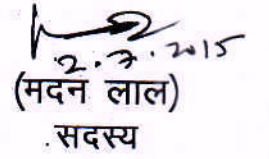 2.7.2015
(मदन लाल)
सदस्य